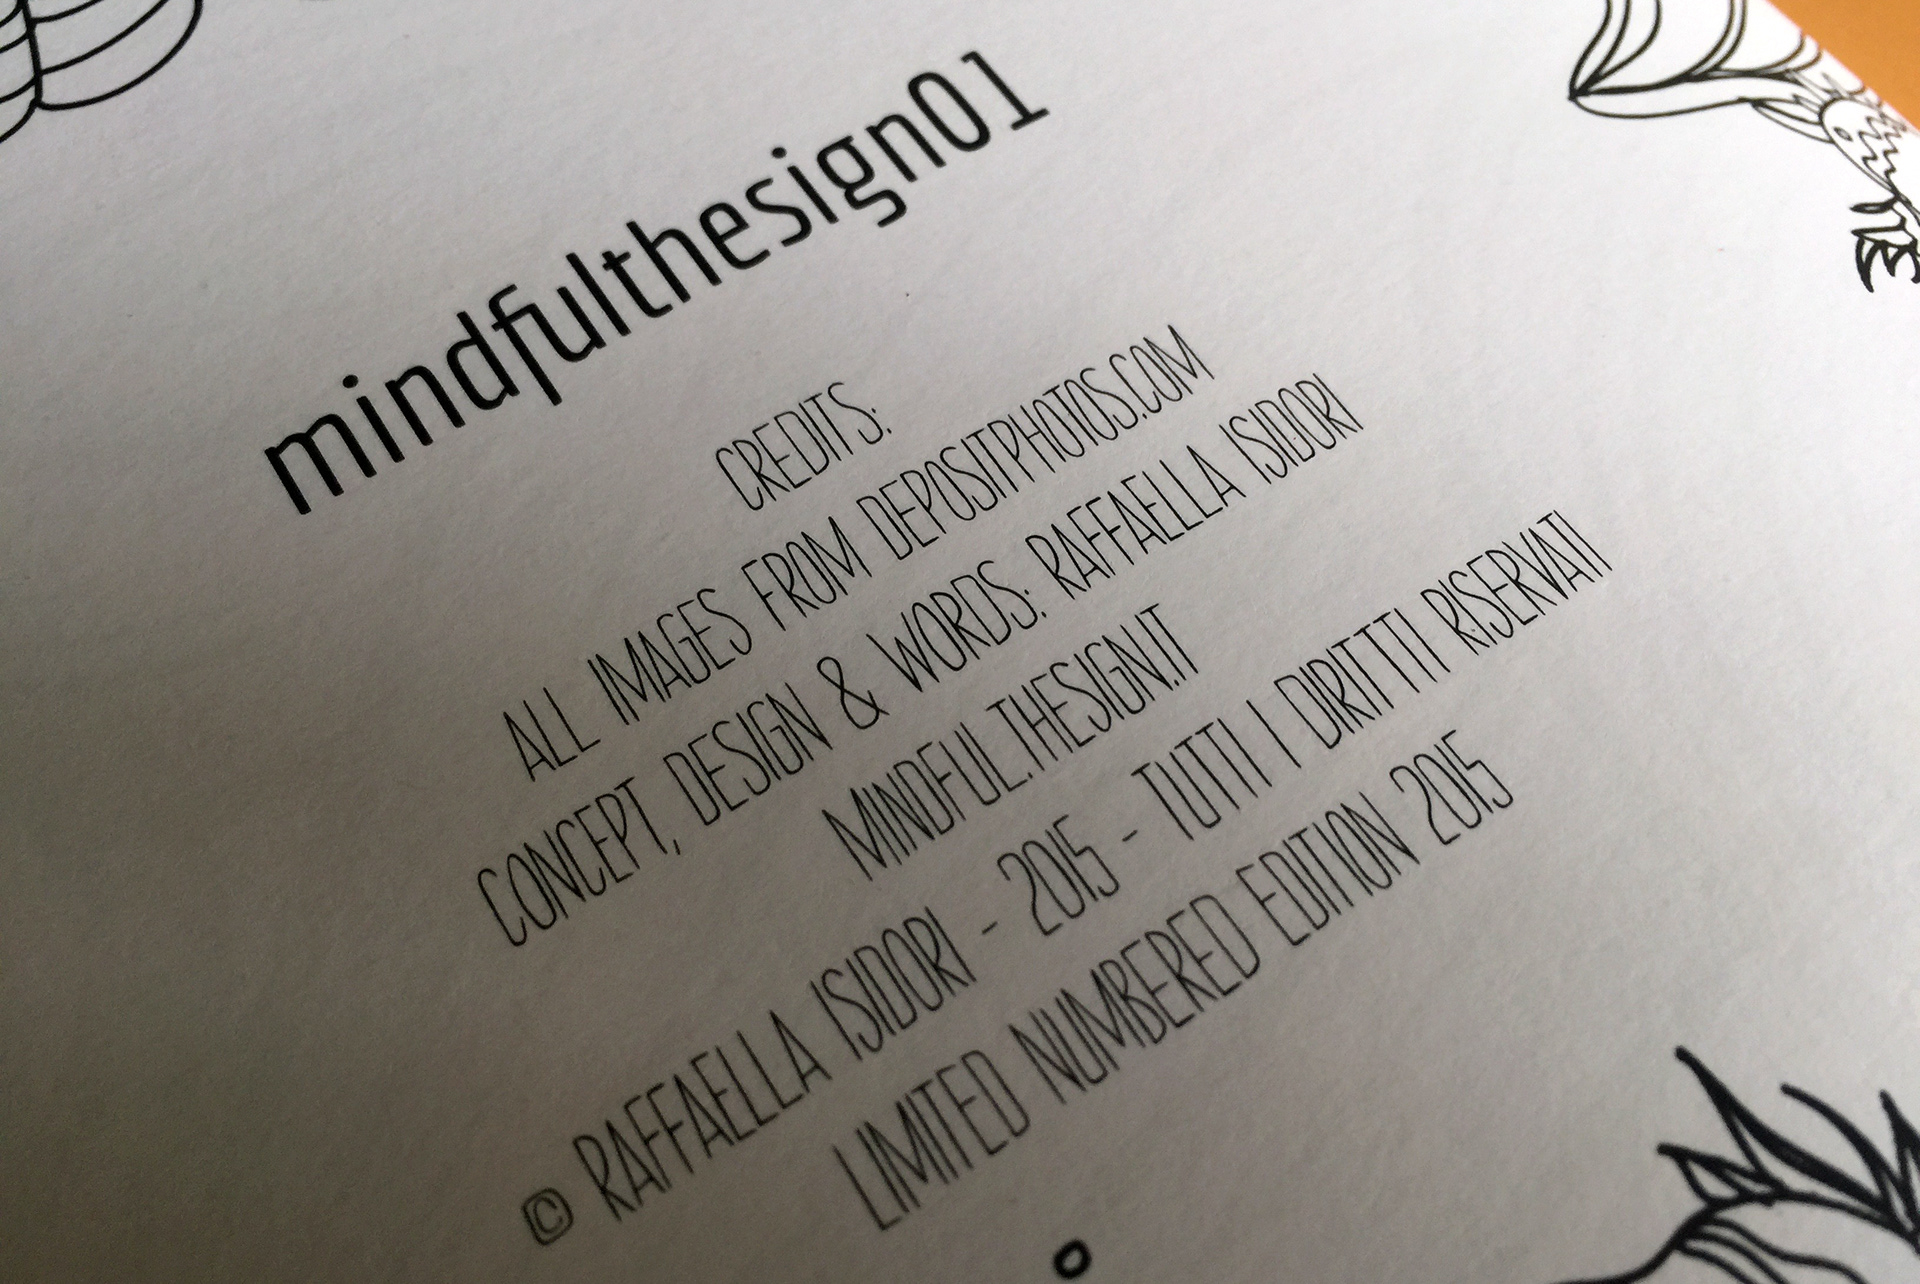 mindfulthesign01
CREDITS:
ALL IMAGES FROM DEPOSITPHOTOS.COM
CONCEPT, DESIGN & WORDS: RAFFAELLA ISIDORI
MINDFUL.THESIGN.IT
© RAFFAELLA ISIDORI - 2015 - TUTTI I DIRITTI RISERVATI
LIMITED NUMBERED EDITION 2015